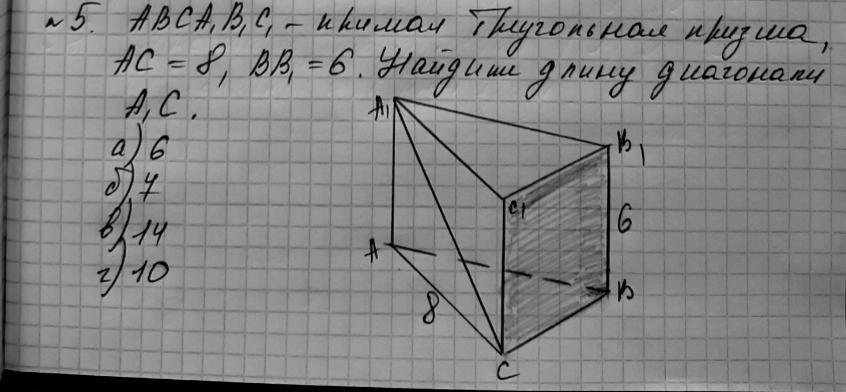 №5. ABCA₁B₁C₁ – прямая треугольная призма,
AC = 8, BB₁ = 6. Найдите длину диагонали
A₁C.
а) 6
б) 7
в) 14
г) 10
A₁
B₁
C₁
6
A
B
8
C